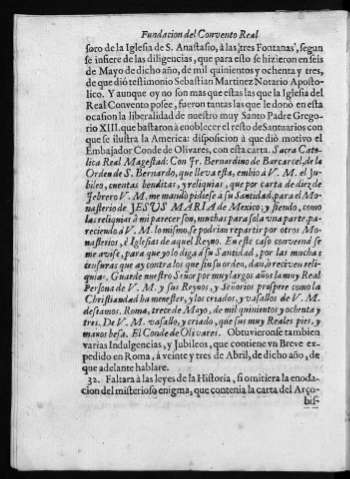 Fundacion del Convento Real
soro de la Iglesia de S. Anastasio, à las, tres Fontanas, segun
se infiere de las diligencias, que para esto se hizieron en seis
de Mayo de dicho año, de mil quinientos y ochenta y tres,
de que diò testimonio Sebastian Martinez Notario Aposto-
lico. Y aunque oy no son mas que estas las que la Iglesia del
Real Convento posee, fueron tantas las que le donò en esta
ocasion la liberalidad de nuestro muy Santo Padre Grego-
rio XIII. que bastaron à enoblecer el resto de Santuarios con
que se ilustra la America: disposicion à que diò motivo el
Embajador Conde de Olivares, con esta carta. Sacra Cato-
lica Real Magestad: Con Fr. Bernardino de Barcarcel, de la
Orden de S. Bernardo, que lleva esta, embio à V. M. el Ju-
bileo, cuentas benditas, y reliquias, que por carta de diez de
Febrero V. M. me mandò pidiese à su Santidad, para el Mo-
nasterio de JESUS MARIA de Mexico; y siendo, como
las reliquias à mi parecer son, muchas para sola una parte, pa-
reciendo à V. M. lo mismo, se podrian repartir por otros Mo-
nasterios, è Iglesias de aquel Reyno. En este caso conviene se
me avise, para que yo lo diga à su Santidad, por las muchas
censuras que ay contra los que sin su orden, dan, ò reciven reli-
quias. Guarde nuestro Señor por muy largos años la muy Real
Persona de V. M. y sus Reynos, y Señorios prospere como la
Christiandad ha menester, y los criados, y vasallos de V. M.
deseamos. Roma, trece de Mayo, de mil quinientos y ochenta y
tres. De V. M. vasallo, y criado, que sus muy Reales pies, y
manos besa. El Conde de Olivares. Obtuvieronse tambien
varias Indulgencias, y Jubileos, que contiene vn Breve ex-
pedido en Roma, à veinte y tres de Abril, de dicho año, de
que adelante hablarè.
32. Faltara à las leyes de la Historia, si omitiera la enoda-
cion del misterioso enigma, que contenia la carta del Arço-
bis-